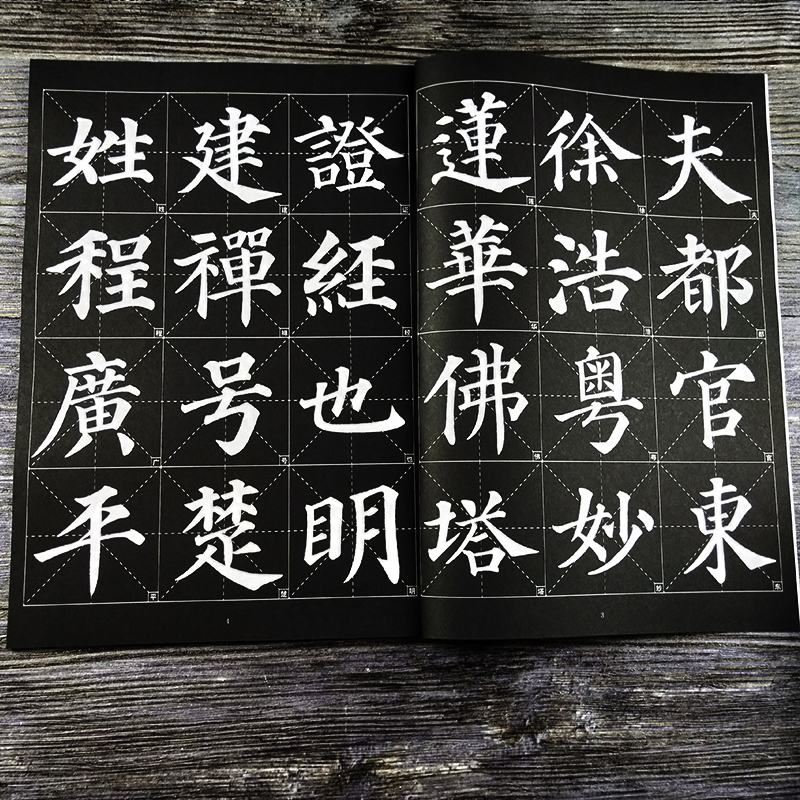 夫都官東
徐浩粤妙
蓮華佛塔
3
證經也明
建禪号楚
姓程廣平
4